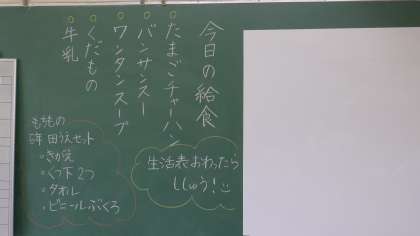 今日の給食
○たまごチャーハン
○バンサンスー
○ワンタンスープ
○くだもの
○牛乳
生活表おわったら
ししゅう!
もちもの
5年 田うえセット
・きがえ
・くつ下2つ
・タオル
・ビニールぶくろ